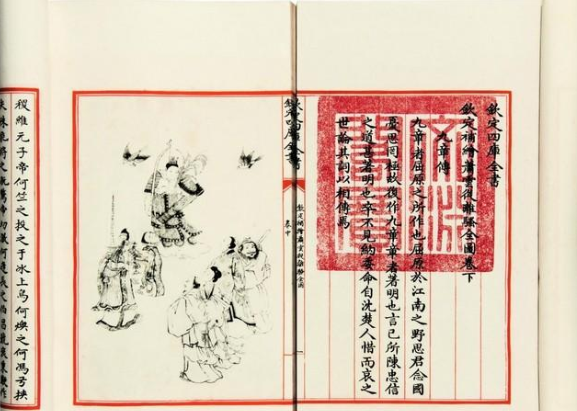 欽定四庫全書
欽定補繪蕭雲從離騷全圖卷下
九章傳
九章者屈原之所作也屈原於江南之野思君念國
憂思罔極故復作九章章者著明也言己所陳忠信
之道甚著明也卒不見納委命自沈楚人惜而哀之
世論其詞以相傳焉
欽定四庫全書
欽定補繪蕭雲從離騷全圖
卷下
一
稷維元子帝何竺之投之于冰上鳥何燠之何馮弓挾